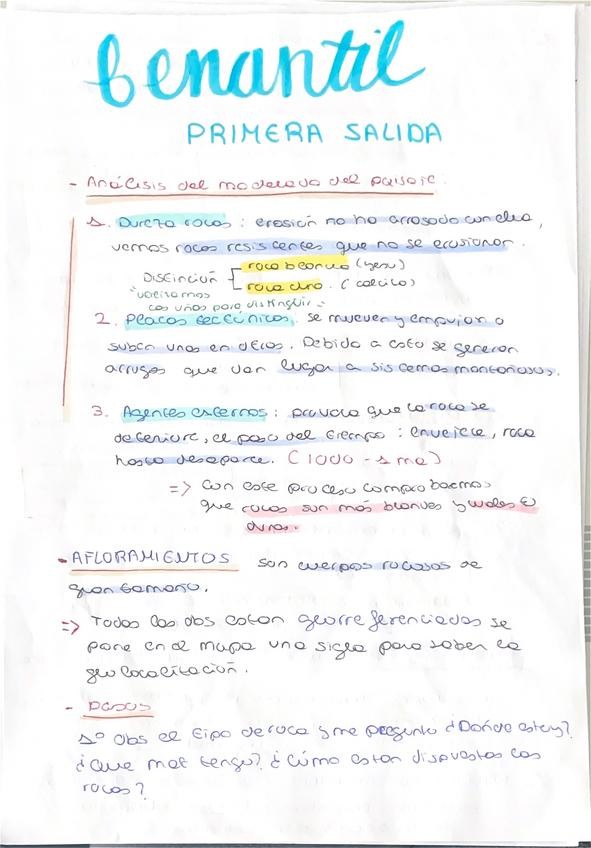 benantil
PRIMERA SALIDA
- Análisis del modelado del paisaje.
1. Dureza rocas : erosión no ha arrasado con ella,
vemos rocas resistentes que no se erosionan.
roca blanda (yeso)
DISTINCIÓN
roca dura. (calcita)
"utilizamos
las uñas para distinguir"
2. Placas tectónicas, se mueven y empujan o
suben unas en otras. Debido a esto se generan
arrugas que dan lugar a sistemas montañosos.
3. Agentes externos : provoca que la roca se
deteriore, el paso del tiempo : envejece, roca
hasta desaparece. (1000 - 1 ma)
=> Con este proceso comprobaremos
que rocas son más blandas y cuales
duras.
- AFLORAMIENTOS son cuerpos rocosos de
gran tamaño.
=> Todas las obs estan georreferenciadas se
pone en el mapa una sigla para saber la
geolocalización.
- PASOS
1º obs el tipo de roca y me pregunto ¿Dónde estoy?
¿Que mat tengo? ¿Cómo estan dispuestas las
rocas?